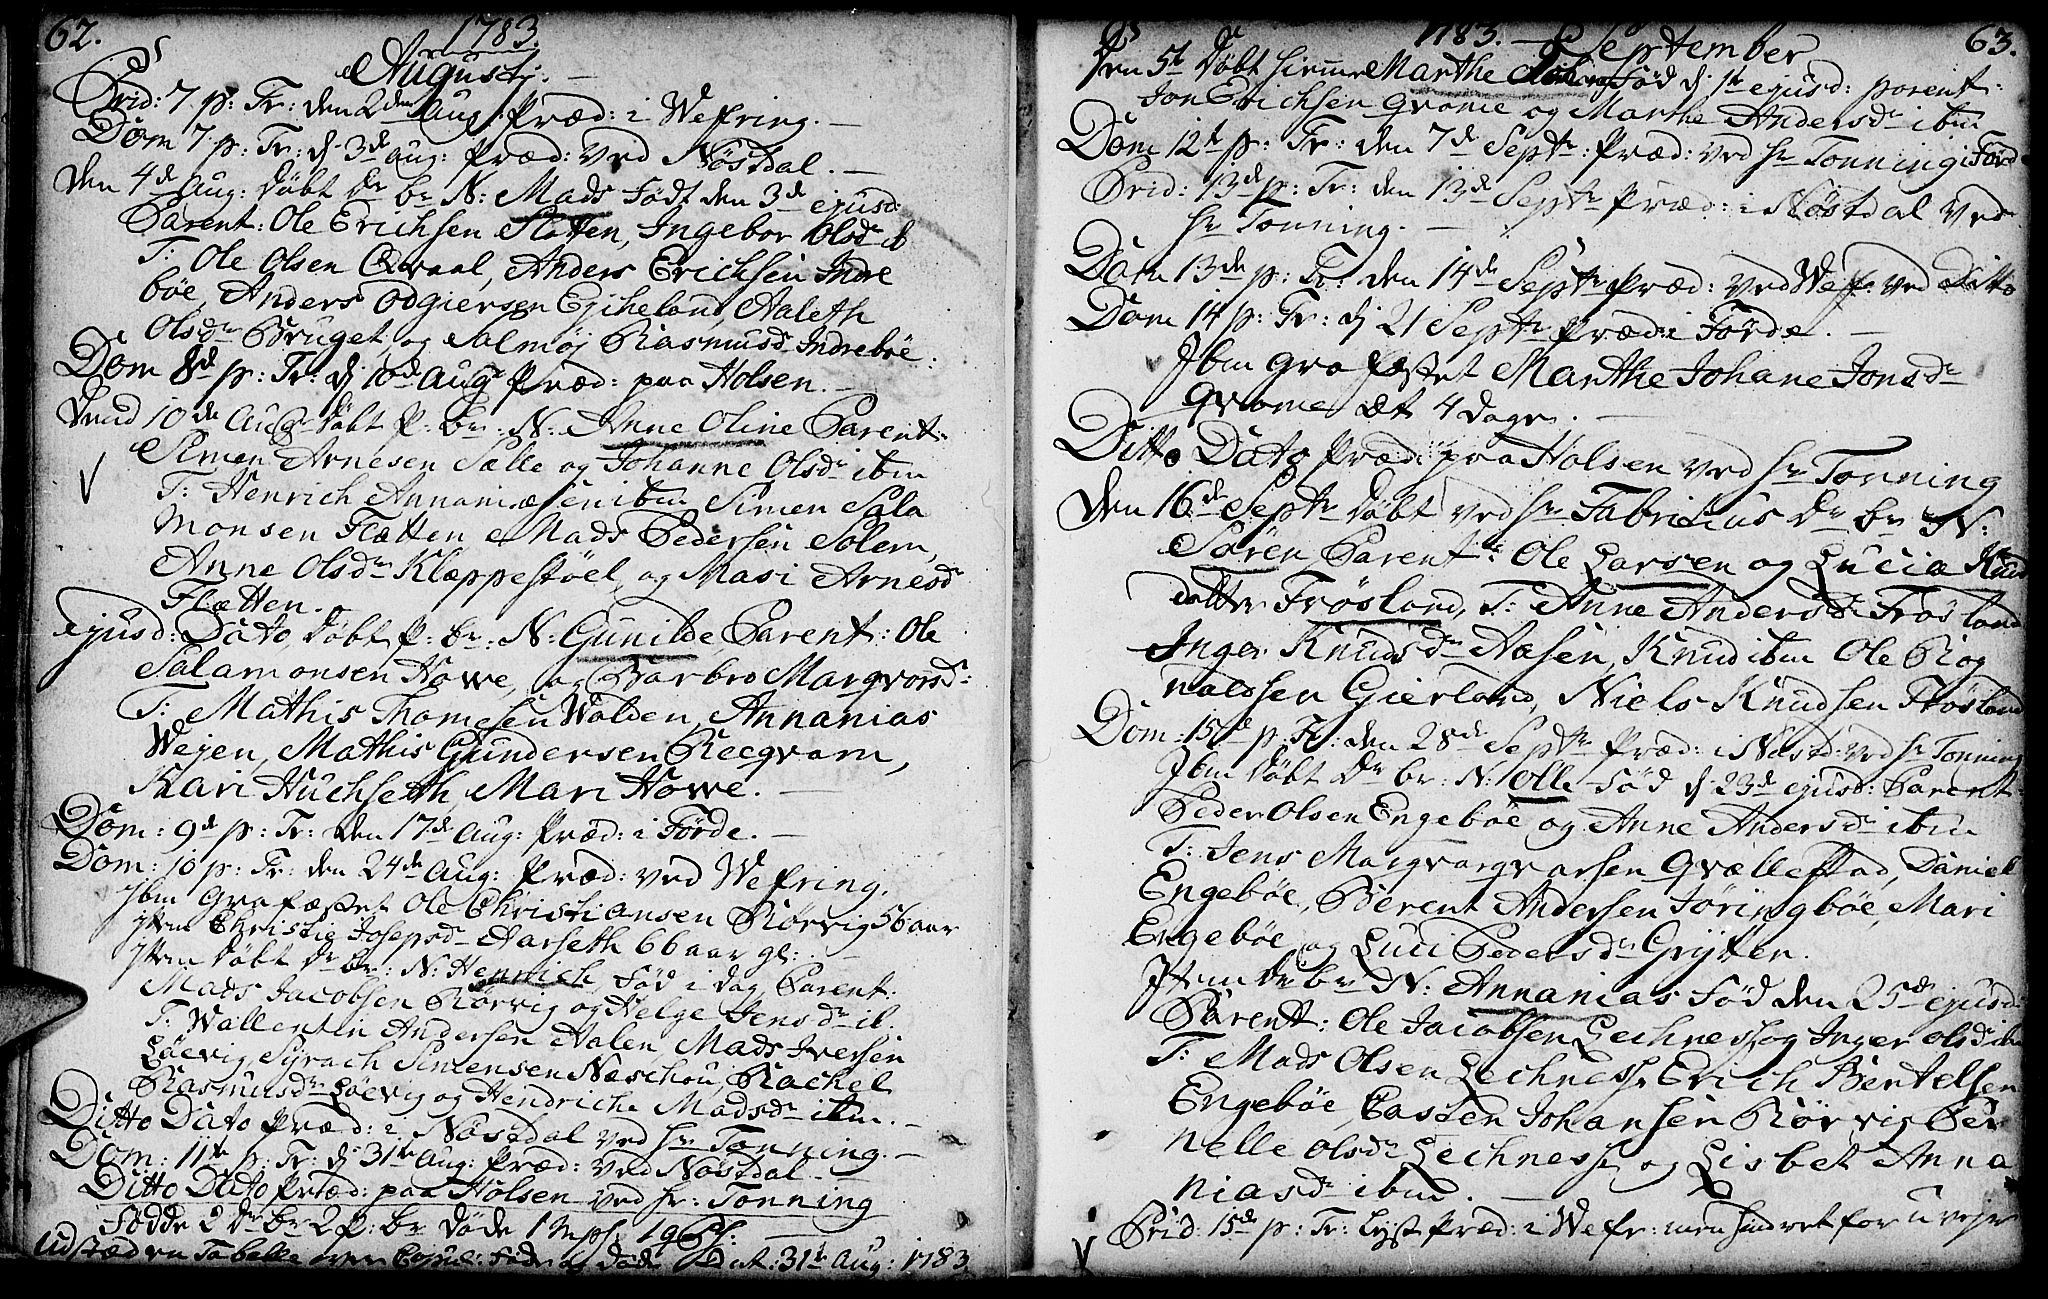 62.
1783.
Augustj. —
Prid: 7. p: Tr: den 2den Aug: Præd: i Wefring. —
Dom 7. p: Tr: dj 3de Aug: Præd: ved Nøstdal. —
Den 4de Aug: døbt Dr: br: N: Mads Født den 3de ejusd:
Parent: Ole Erichsen Slatten, Ingebor Olsdr ib
T: Ole Olsen Qvaal, Anders Erichsen Indre
bøe, Anders Odgiersen Egjheland, Aaleth
Olsdr Bruget, og Salmøj Rasmusdr Indrebøe.
Dom 8de p: Tr: dj 10de Aug: Præd: paa Holsen. —
Den 10de Aug: døbt P: br: N: Anne Oline Parent:
Simen Arnesen Salle og Johanne Olsdr ibm
T: Henrich Annaniæsen ibm Simen Sala
monsen Flætten Mads Pedersen Solem,
Anne Olsdr Klæppestøel, og Masi Arnesdr
Flætten. —
ejusd: Dato døbt P: br: N: Gunilde, Parent: Ole
Salamonsen Howe, og Barbro Marqvorsdr:
T: Mathis Thomesen Walden, Annanias
Wejen, Mathis Gundersen Reeqvam,
Kari Huchseth, Mari Howe. —
Dom: 9de p: Tr: den 17de Aug: Præd: i Førde. —
Dom: 10 p: Tr: den 24de Aug: Præd: ved Wefring.
Ibm Grafæstet Ole Christiansen Rørvig 56 aar
Item Christie Josepsdr Aarseth 66 aar gl: —
Item døbt Dr: br: N: Henrich Fød i dag, Parent:
Mads Jacobsen Rørvig og Helge Jensdr ib.
T: Wallentin Andersen Aalen, Mads Iversen
Løevig, Syrach Simensen Næschou, Rachel
Rasmusdr Løevig og Hendriche Madsdr ibm. —
Ditto Dato Præd: i Nøstdal ved hr Tonning. —
Dom: 11te p: Tr: dj 31te Aug: Præd: ved Nøstdal. —
Ditto Dato Præd: paa Holsen ved hr: Tonning
Fødde 2 Dr: br: 2 P: br: døde 1
Udstæd en Tabelle over Copul: Føde og døde Dat: 31te Aug: 1783.
1783. — September
63.
Den 5te døbt hiemme Marthe Fød dj 1te ejusd: parent:
Jon Erichsen Qvame og Marthe Andersdr ibm
Dom 12te p: Tr: den 7de Septr: Præd: ved hr Tonning i Førd
Prid: 13de p: Tr: den 13de Septr Præd: i Nøstdal ved
hr Tonning. —
Dom 13de p: Tr: den 14de Septr Præd: ved Wef: ved Ditto
Dom 14 p: Tr: dj 21 Septr Præd: i Førde. —
Ibm grafæstet Marthe Johane Jonsdr
Qvame æt 4 dage. —
Ditto Dato Præd: paa Holsen ved hr Tonning
Den 16de Septr døbt ved hr Fabritius Dr br N:
Søren, Parent: Ole Larsen og Lucia Knud
datter Frøsland, T: Anne Andersdr Frøsland
Inger Knudsdr Aasen, Knud ibm Ole Rog
naldsen Gierland, Niels Knudsen Frøsland
Dom: 15de p: Tr: den 28de Septr Præd: i Nøstd: ved hr Tonning
Ibm døbt Dr br: N: Olle Fød dj 23de ejusd: Parent:
Peder Olsen Engebøe og Anne Andersdr ibm
T: Jens Marqvarqvarsen Qvællestad, Daniel
Engebøe, Berent Andersen Jøringbøe, Mari
Engebøe og Luci Pedersdr Grytter.
Item Dr br N: Annanias Fød den 25de ejusd:
Parent: Ole Jacobsen Lechness, og Inger Olsdr ibm
T: Mads Olsen Lechness, Erich Bertelsen
Engebøe, Casten Johansen Rørvig Per
nelle Olsdr Lechness, og Lisbet Anna
niasdr ibm. —
Prid: 15de p: Tr: Lyst Præd: i Wefr: men hindret for uvejr